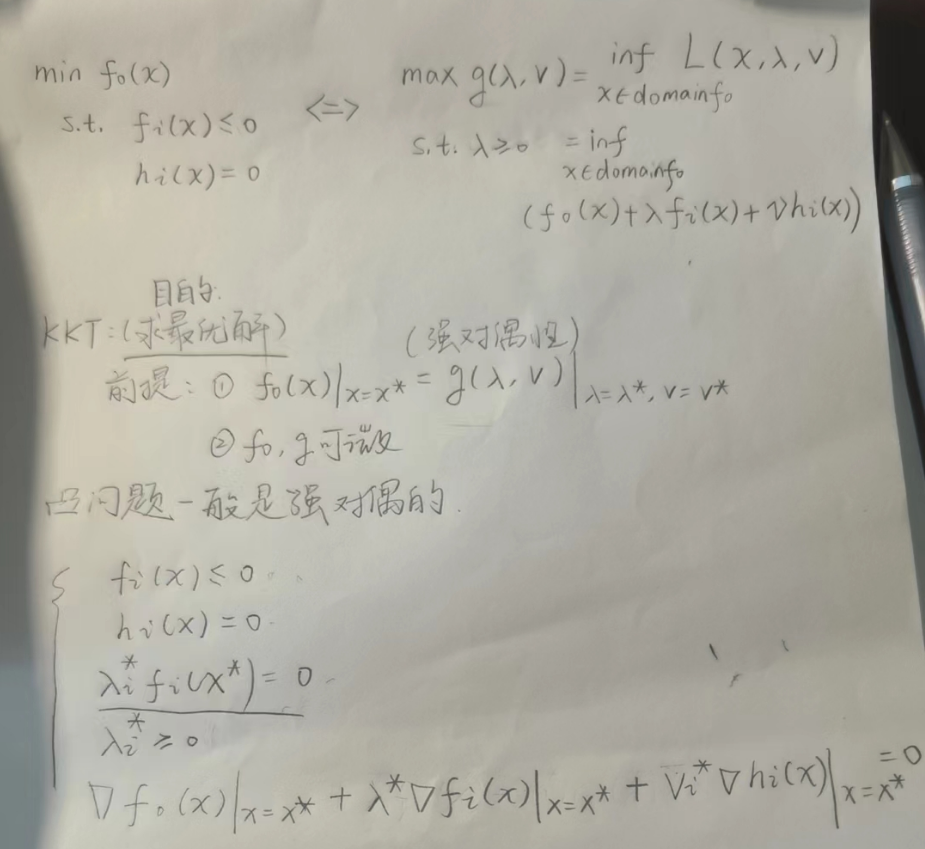 min f₀(x) <=> max g(λ, v) = inf L(x, λ, v)
x∈domainf₀
s.t. fi(x) ≤ 0 s.t. λ≥0 = inf
hi(x) = 0 x∈domainf₀
(f₀(x)+λfi(x)+νhi(x))
目的:
KKT:(求最优解) (强对偶性)
前提: ① f₀(x)|x=x* = g(λ, v)|λ=λ*, v=v*
② f₀, g可微
凸问题一般是强对偶的.
{ fi(x) ≤ 0
hi(x) = 0
λi* fi(x*) = 0
λi* ≥ 0
∇f₀(x)|x=x* + λ*∇fi(x)|x=x* + Vi*∇hi(x)|x=x* =0